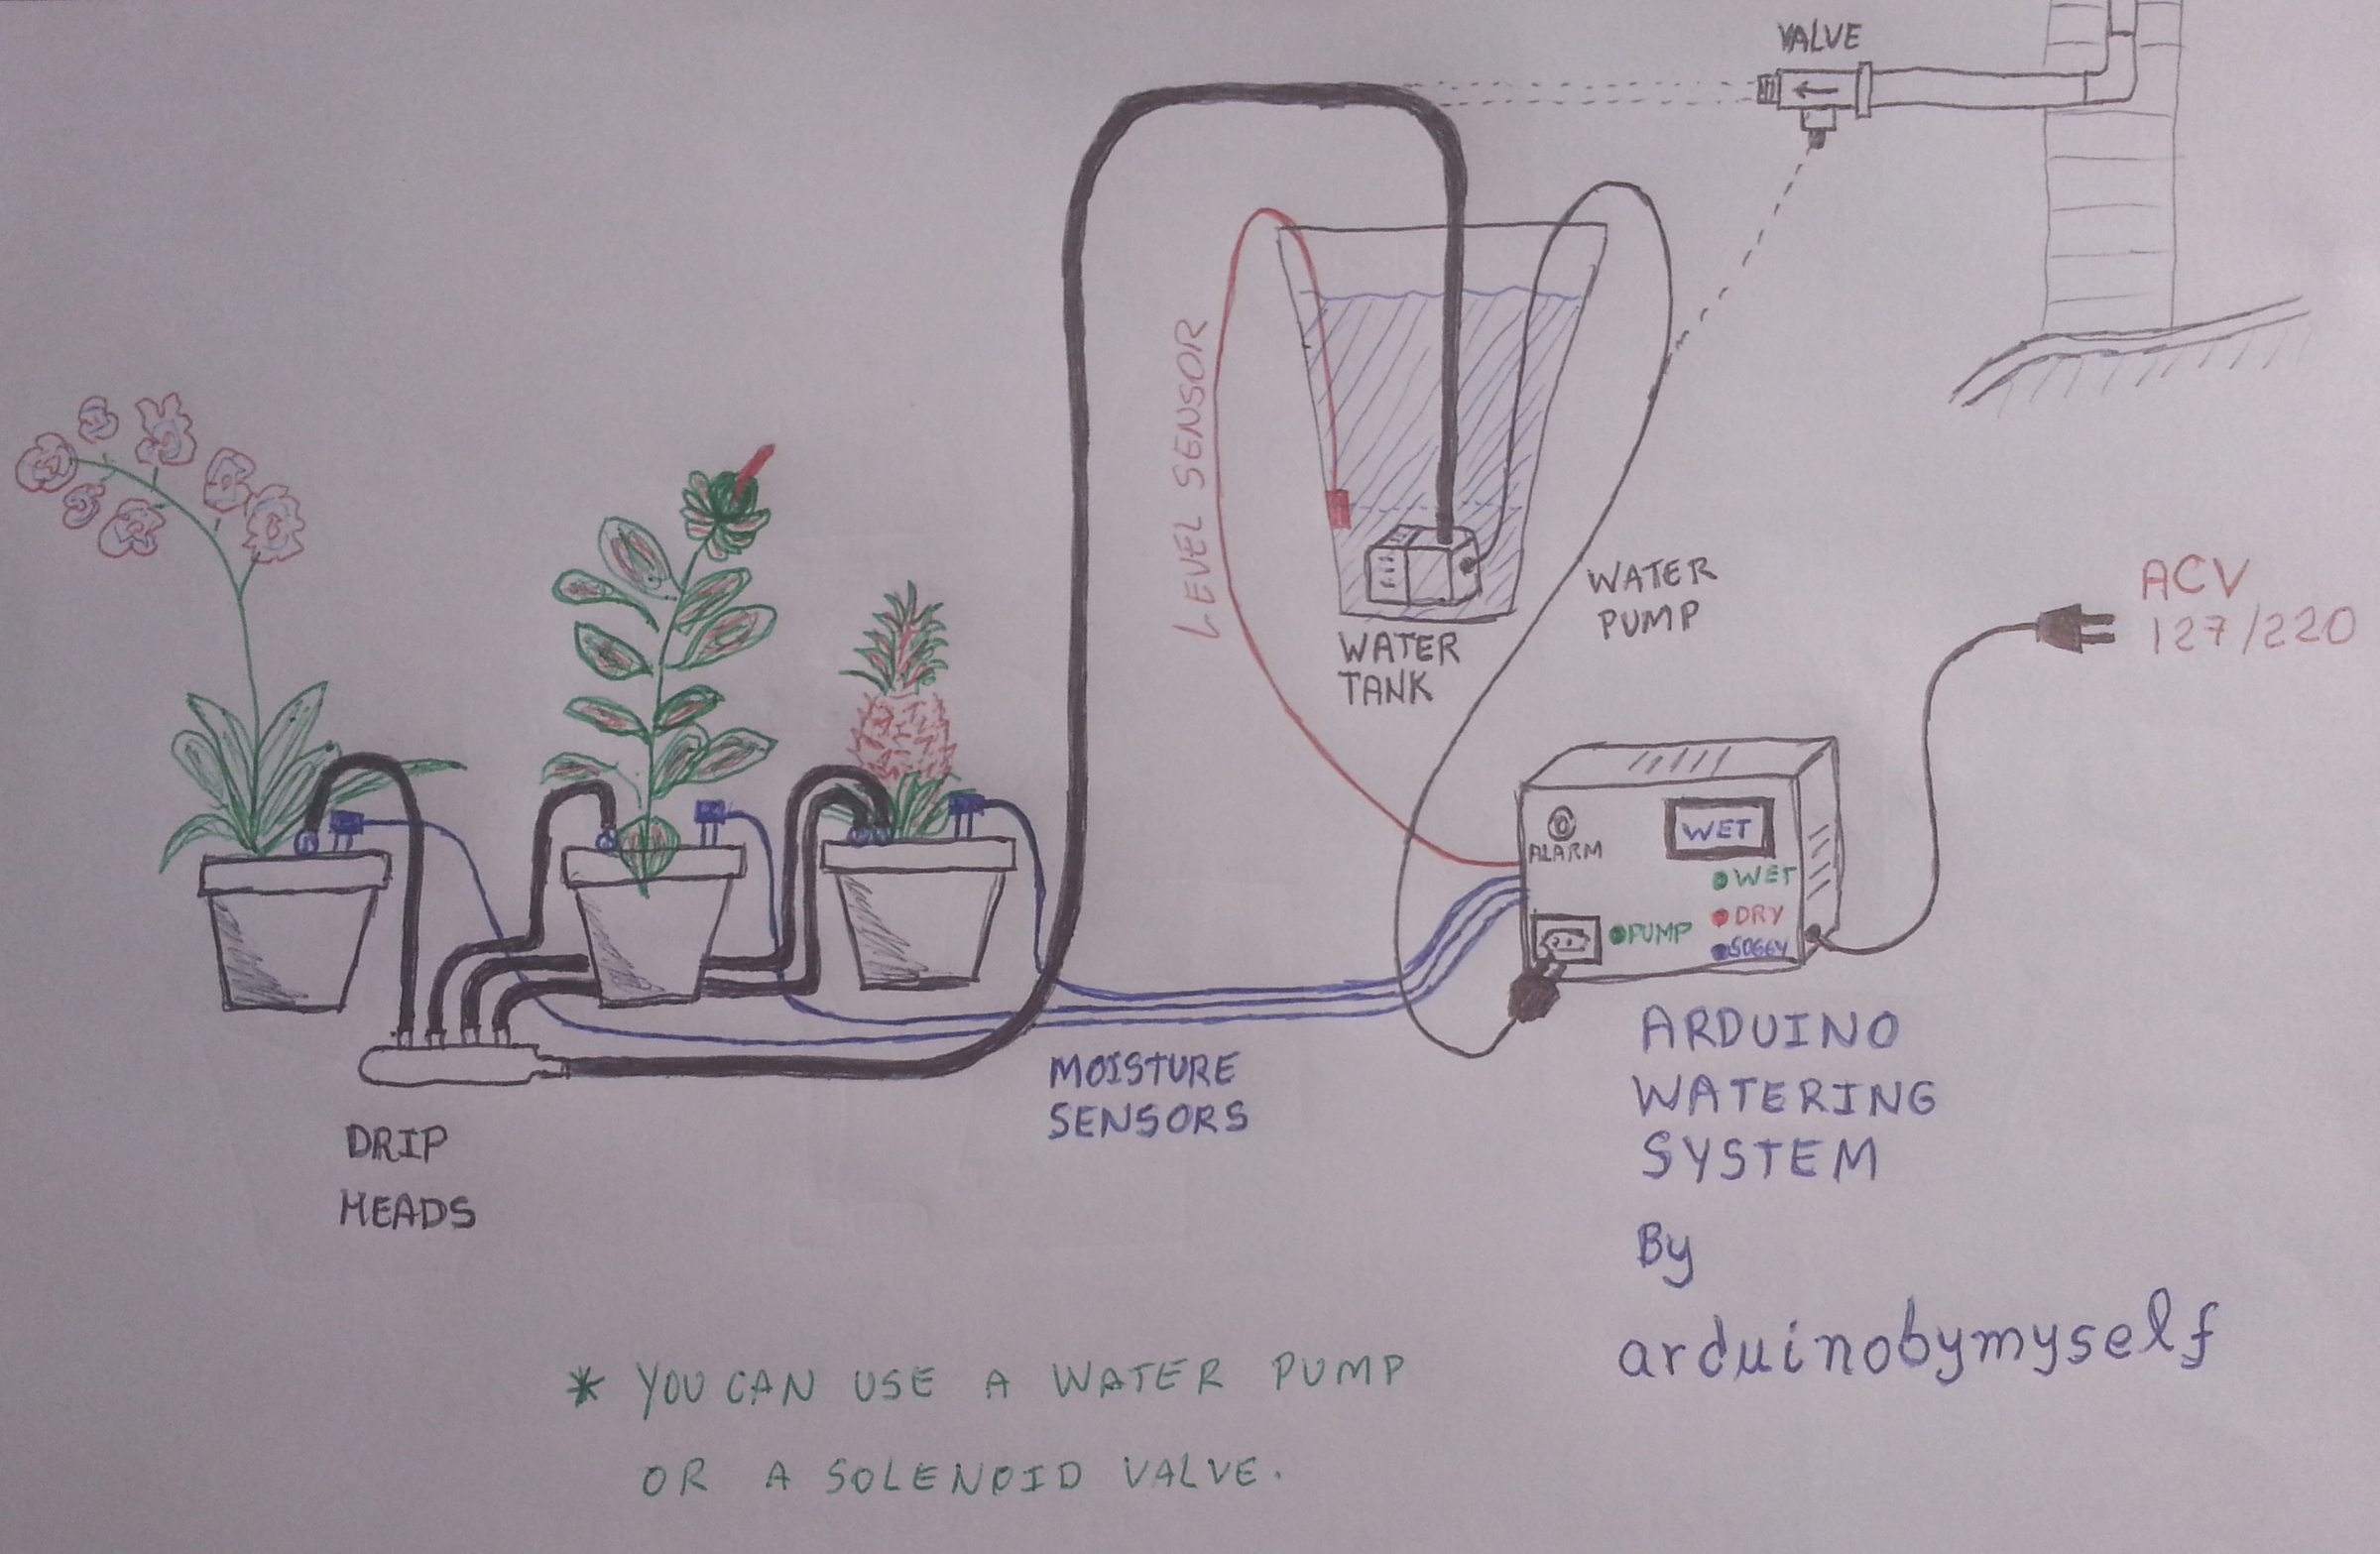 VALVE
LEVEL SENSOR
WATER
PUMP
WATER
TANK
ACV
127/220
ALARM
WET
WET
DRY
PUMP
SOGGY
MOISTURE
SENSORS
DRIP
HEADS
ARDUINO
WATERING
SYSTEM
By
arduinobymyself
* YOU CAN USE A WATER PUMP
OR A SOLENOID VALVE.